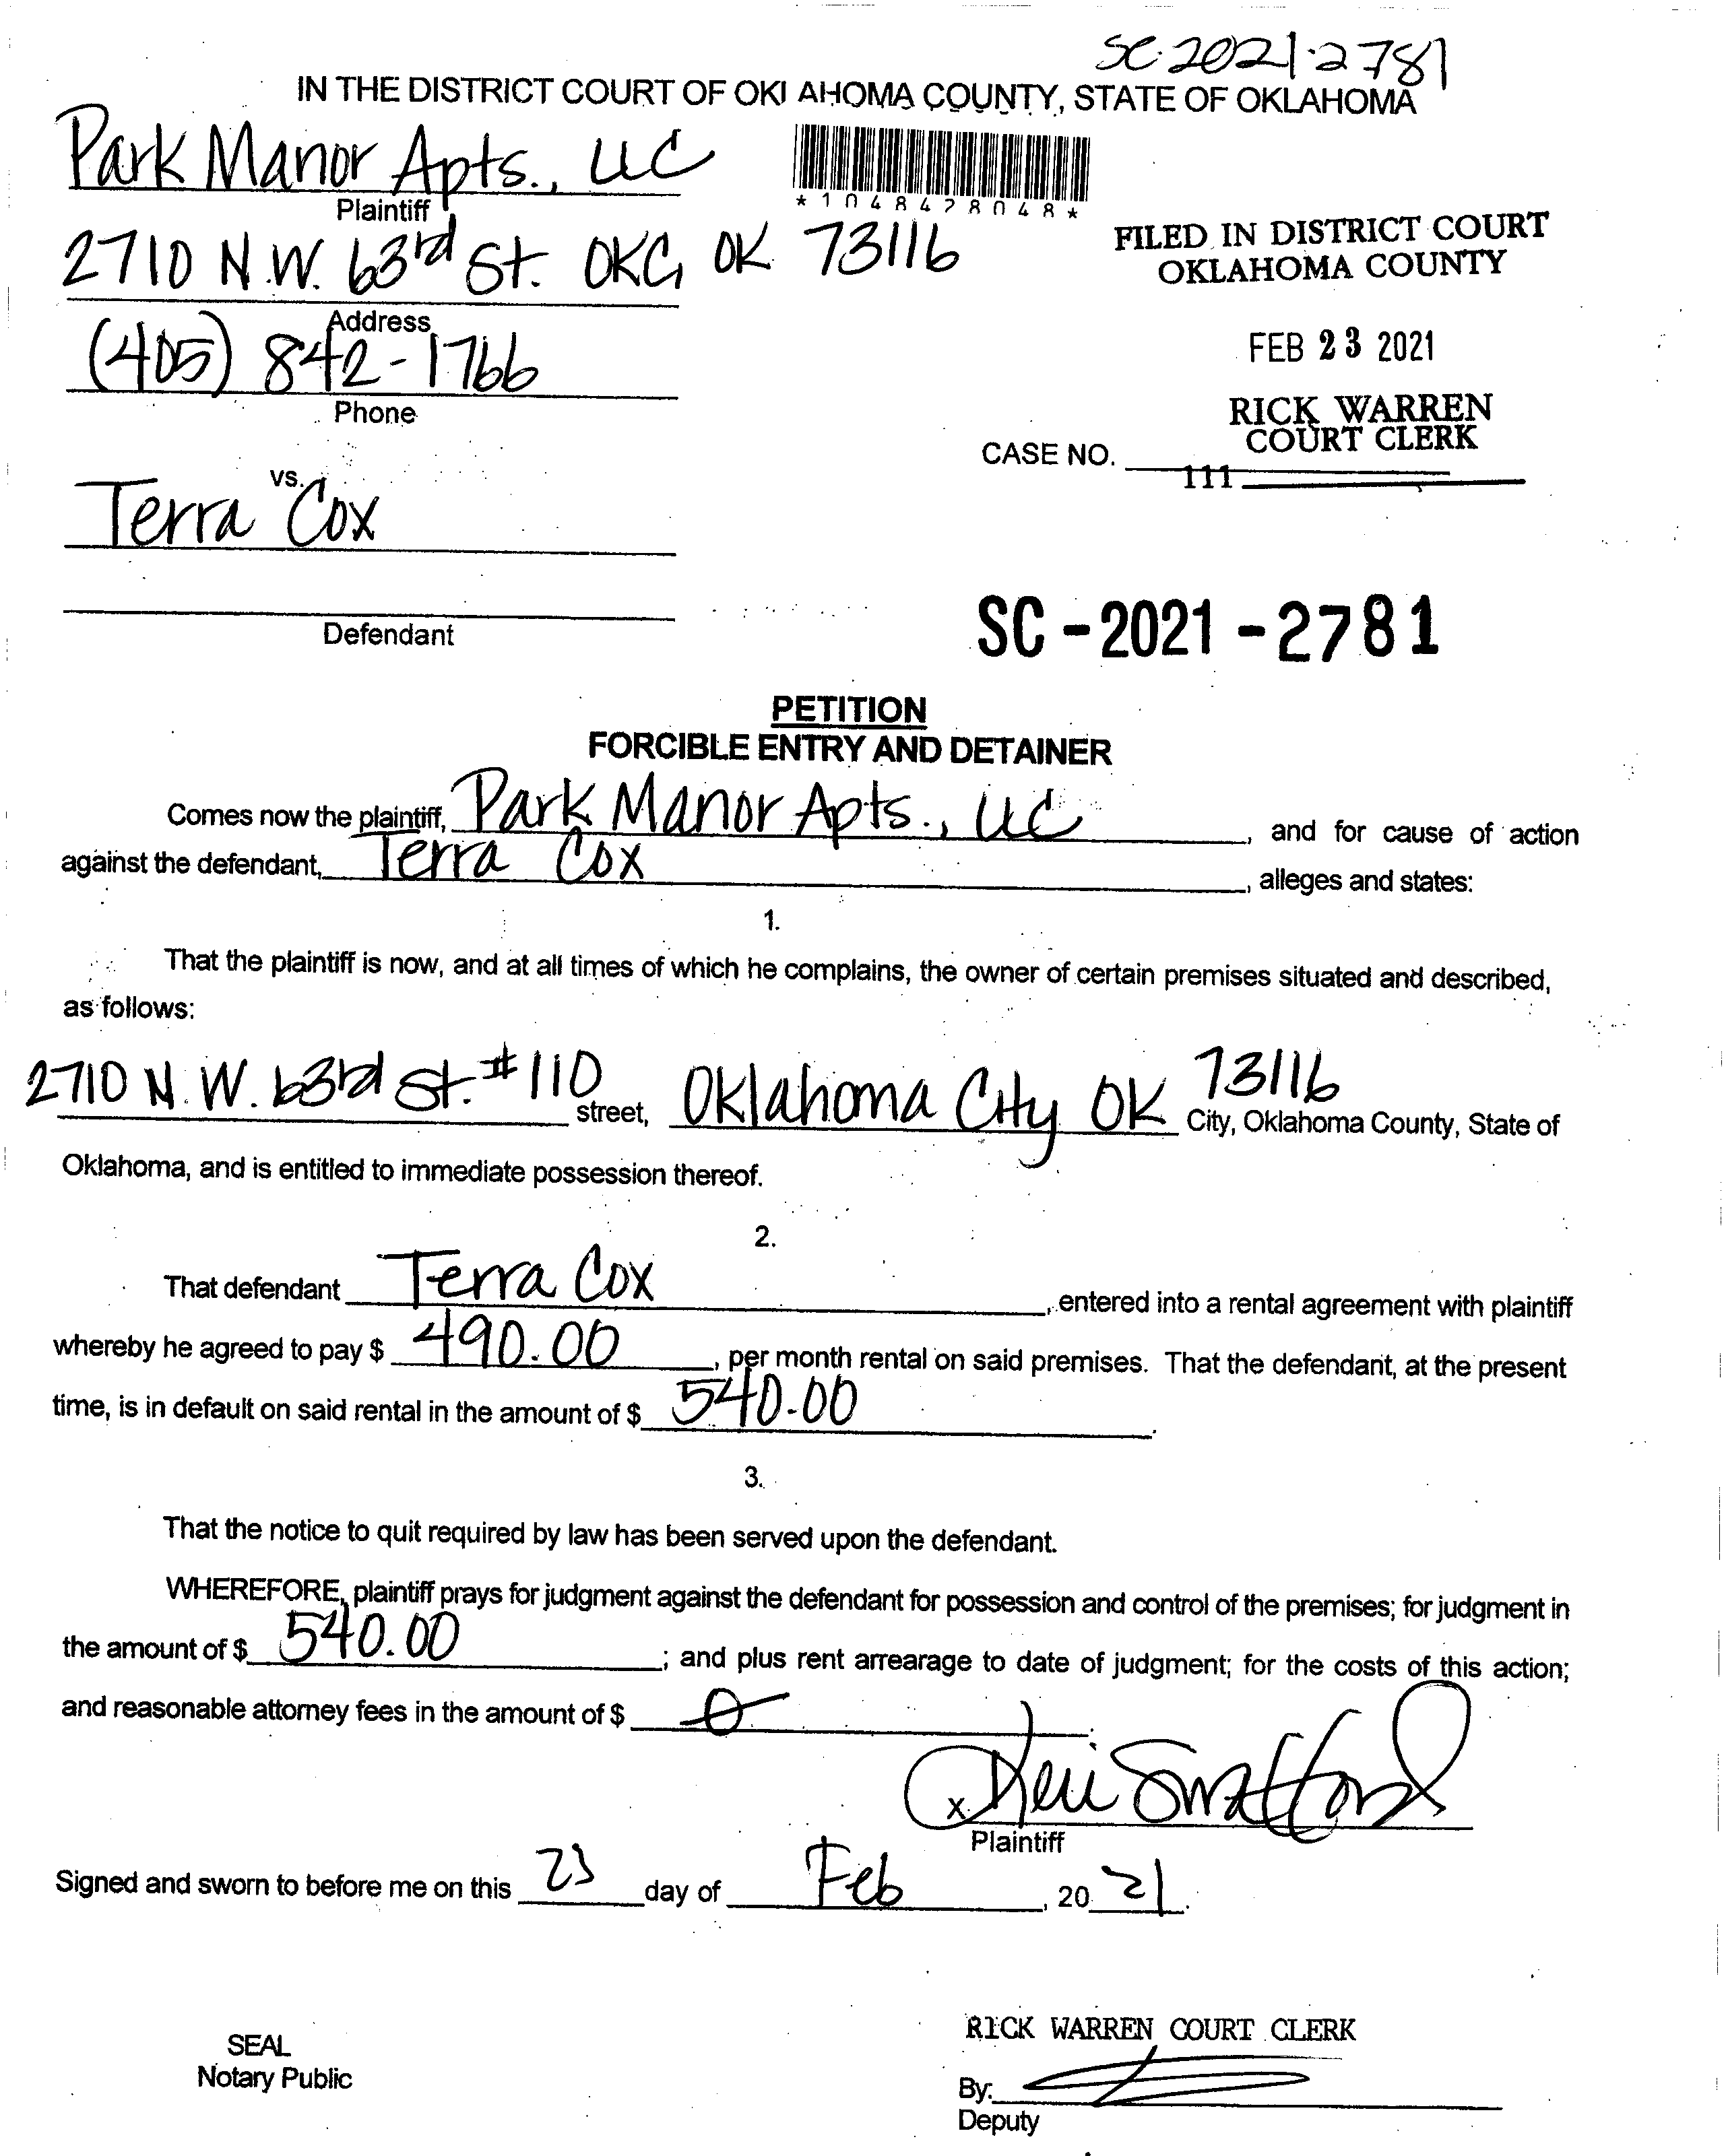 SC-2021-2781
IN THE DISTRICT COURT OF OKLAHOMA COUNTY, STATE OF OKLAHOMA
Park Manor Apts., LLC
Plaintiff
*1048478048*
2710 N.W. 63rd St. OKC, OK 73116
FILED IN DISTRICT COURT
OKLAHOMA COUNTY
Address
(405) 842-1766
Phone
FEB 23 2021
RICK WARREN
COURT CLERK
CASE NO.
111
vs.
Terra Cox
Defendant
SC-2021-2781
PETITION
FORCIBLE ENTRY AND DETAINER
Comes now the plaintiff, Park Manor Apts., LLC, and for cause of action
against the defendant, Terra Cox, alleges and states:
1.
That the plaintiff is now, and at all times of which he complains, the owner of certain premises situated and described,
as follows:
2710 N.W. 63rd St. #110 street, Oklahoma City OK 73116 City, Oklahoma County, State of
Oklahoma, and is entitled to immediate possession thereof.
2.
That defendant Terra Cox, entered into a rental agreement with plaintiff
whereby he agreed to pay $ 490.00, per month rental on said premises. That the defendant, at the present
time, is in default on said rental in the amount of $ 540.00.
3.
That the notice to quit required by law has been served upon the defendant.
WHEREFORE, plaintiff prays for judgment against the defendant for possession and control of the premises; for judgment in
the amount of $ 540.00; and plus rent arrearage to date of judgment; for the costs of this action;
and reasonable attorney fees in the amount of $ 0.
x Keri Swafford
Plaintiff
Signed and sworn to before me on this 23 day of Feb, 20 21.
SEAL
Notary Public
RICK WARREN COURT CLERK
By:
Deputy